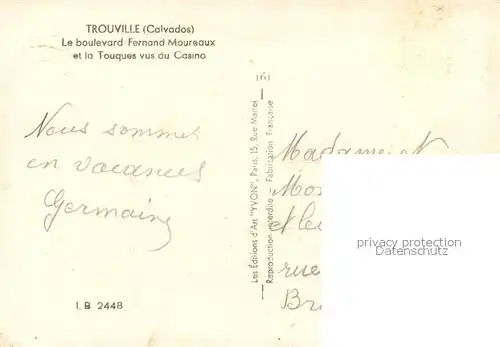 TROUVILLE (Calvados)
Le boulevard Fernand Moureaux
et la Touques vus du Casino
161
Nous sommes
en vacances
Germaine
Les Éditions d'Art "YVON", Paris, 15, Rue Martel
Reproduction interdite - Fabrication Française
Madame
et
rue
privacy protection
Datenschutz
I. B 2448